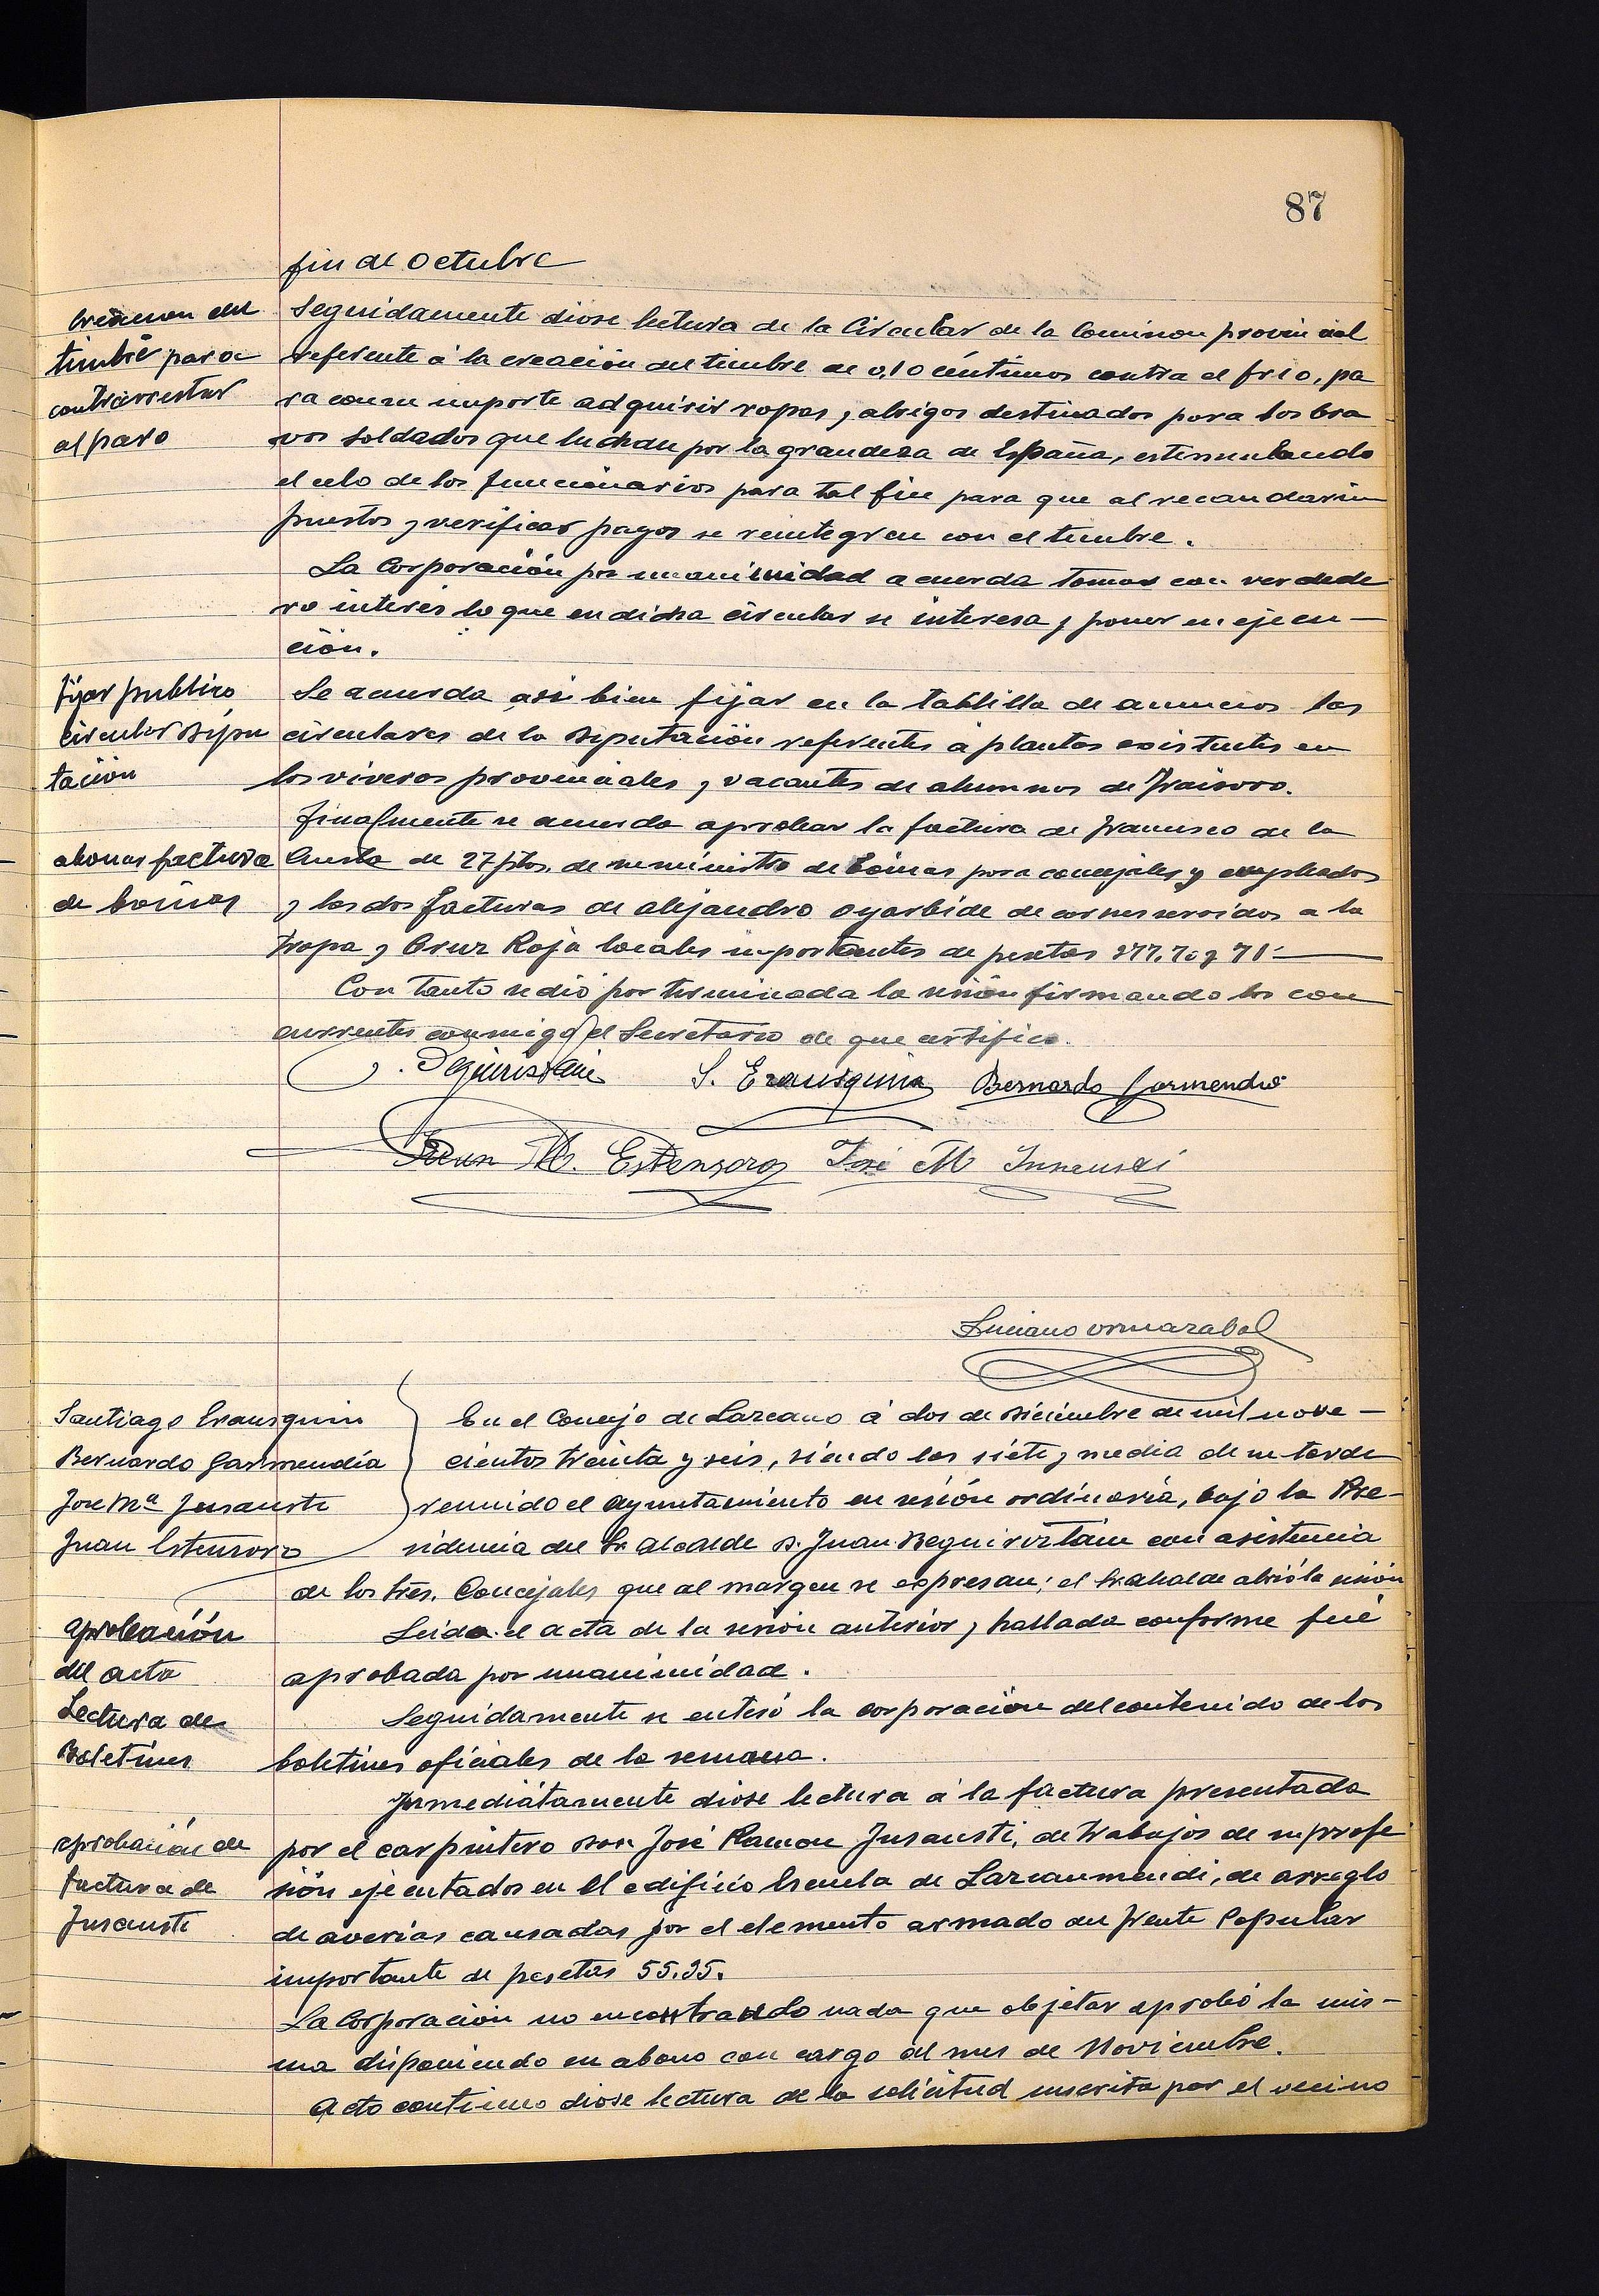 87
fin de Octubre
Creacion del
timbre para
contrarrestar
al paro
Seguidamente diose lectura de la Circular de la Comision provincial
referente á la creación del timbre de 0,10 céntimos contra el frio, pa
ra con su importe adquirir ropas y abrigos destinados para los bra
vos soldados que luchan por la grandeza de España, estimulando
el celo de los funcionarios para tal fin para que al recaudar im
puestos y verificar pagos se reintegren con el timbre.
La Corporación por unanimidad acuerda tomar con verdade
ro interés lo que en dicha circular se interesa y poner en ejecu-
ción.
fijar publico
circular Dipu
tacion
Se acuerda asi bien fijar en la tablilla de anuncios las
circulares de la Diputación referentes á plantas existentes en
los viveros provinciales y vacantes de alumnos de Fraisoro.
abonar factura
de boinas
finalmente se acuerda aprobar la factura de francisco de la
Cuesta de 27 ptas. de suministro de boinas para concejales y empleados
y las dos facturas de alejandro oyarbide de carnes servidos a la
tropa y Cruz Roja locales importantes de pesetas 277,70 y 71-
Con tanto se dió por terminada la sesión firmando los con
currentes conmigo el Secretario de que certifico.
J. Reguiristain S. Erausquin Bernardo Garmendia
Juan M. Estensoro José M Insausti
Luciano Ormazabal
Santiago Erausquin
Bernardo Garmendia
Jose Mª Insausti
Juan Estensoro
En el Concejo de Lazcano á dos de Diciembre de mil nove-
cientos treinta y seis, siendo las siete y media de su tarde
reunido el Ayuntamiento en sesión ordinaria, bajo la Pre-
sidencia del Sr. alcalde D. Juan Reguiriztain con asistencia
de los tres. Concejales que al margen se expresan; el Sr. alcalde abrió la sesión
aprobación
del acta
Leida el acta de la sesion anterior y hallada conforme fué
aprobada por unanimidad.
Lectura de
Boletines
Seguidamente se enteró la corporación del contenido de los
boletines oficiales de la semana.
aprobación de
factura de
Insausti
Inmediatamente diose lectura a la factura presentada
por el carpintero Don José Ramon Insausti, de trabajos de su profe
sión ejecutados en el edificio Escuela de Lazcaumendi, de arreglo
de averias causadas por el elemento armado del frente Popular
importante de pesetas 55.95.
La Corporación no encontrando nada que objetar aprobó la mis-
ma disponiendo su abono con cargo al mes de Noviembre.
Acto contínuo diose lectura de la solicitud suscrita por el vecino